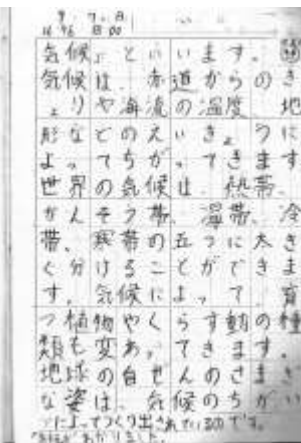 気候」といいます。
気候は、赤道からのき
ょりや海流の温度、地
形などのえいきょうに
よってちがってきます
世界の気候は、熱帯、
かんそう帯、温帯、冷
帯、寒帯の五つに大き
く分けることができま
す。気候によって、育
つ植物やくらす動の種
類も変わってきます。
地球の自ぜんのさまざま
な姿は、気候のちがい
によってつくり出されているのです。